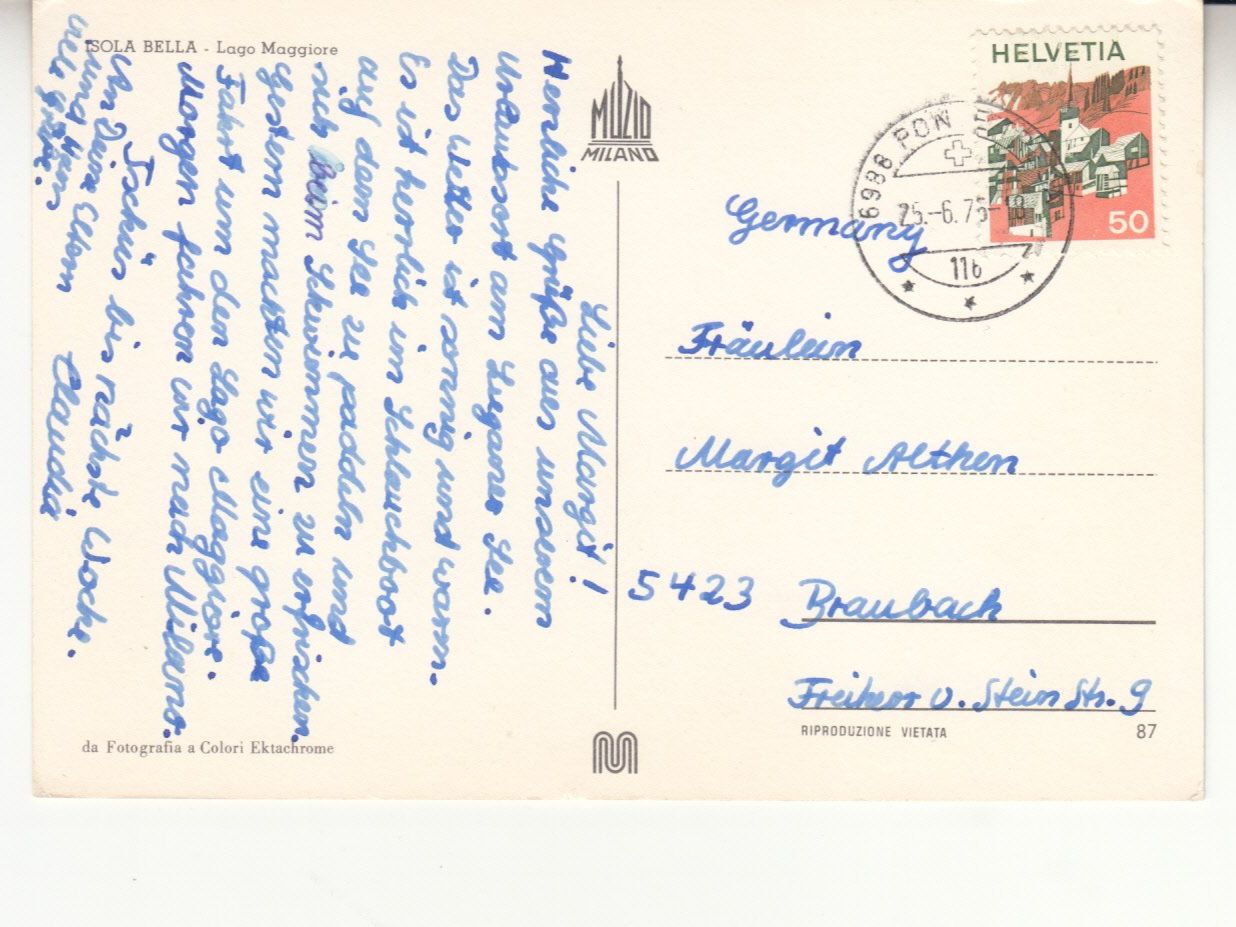 ISOLA BELLA - Lago Maggiore
Liebe Margit!
Herzliche Grüße aus unserem
Urlaubsort am Luganer See.
Das Wetter ist sonnig und warm.
Es ist herrlich im Schlauchboot
auf dem See zu paddeln und
sich beim Schwimmen zu erfrischen.
Gestern machten wir eine große
Fahrt um den Lago Maggiore.
Morgen fahren wir nach Milano.
Tschüs bis nächste Woche.
Claudia
An Deine Eltern
und
viele Grüße.
da Fotografia a Colori Ektachrome
MUZIO
MILANO
HELVETIA
50
6988 PON
25.-6.75
116
Germany
Fräulein
Margit Althen
5423 Braubach
Freiherr v. Stein Str. 9
RIPRODUZIONE VIETATA
87